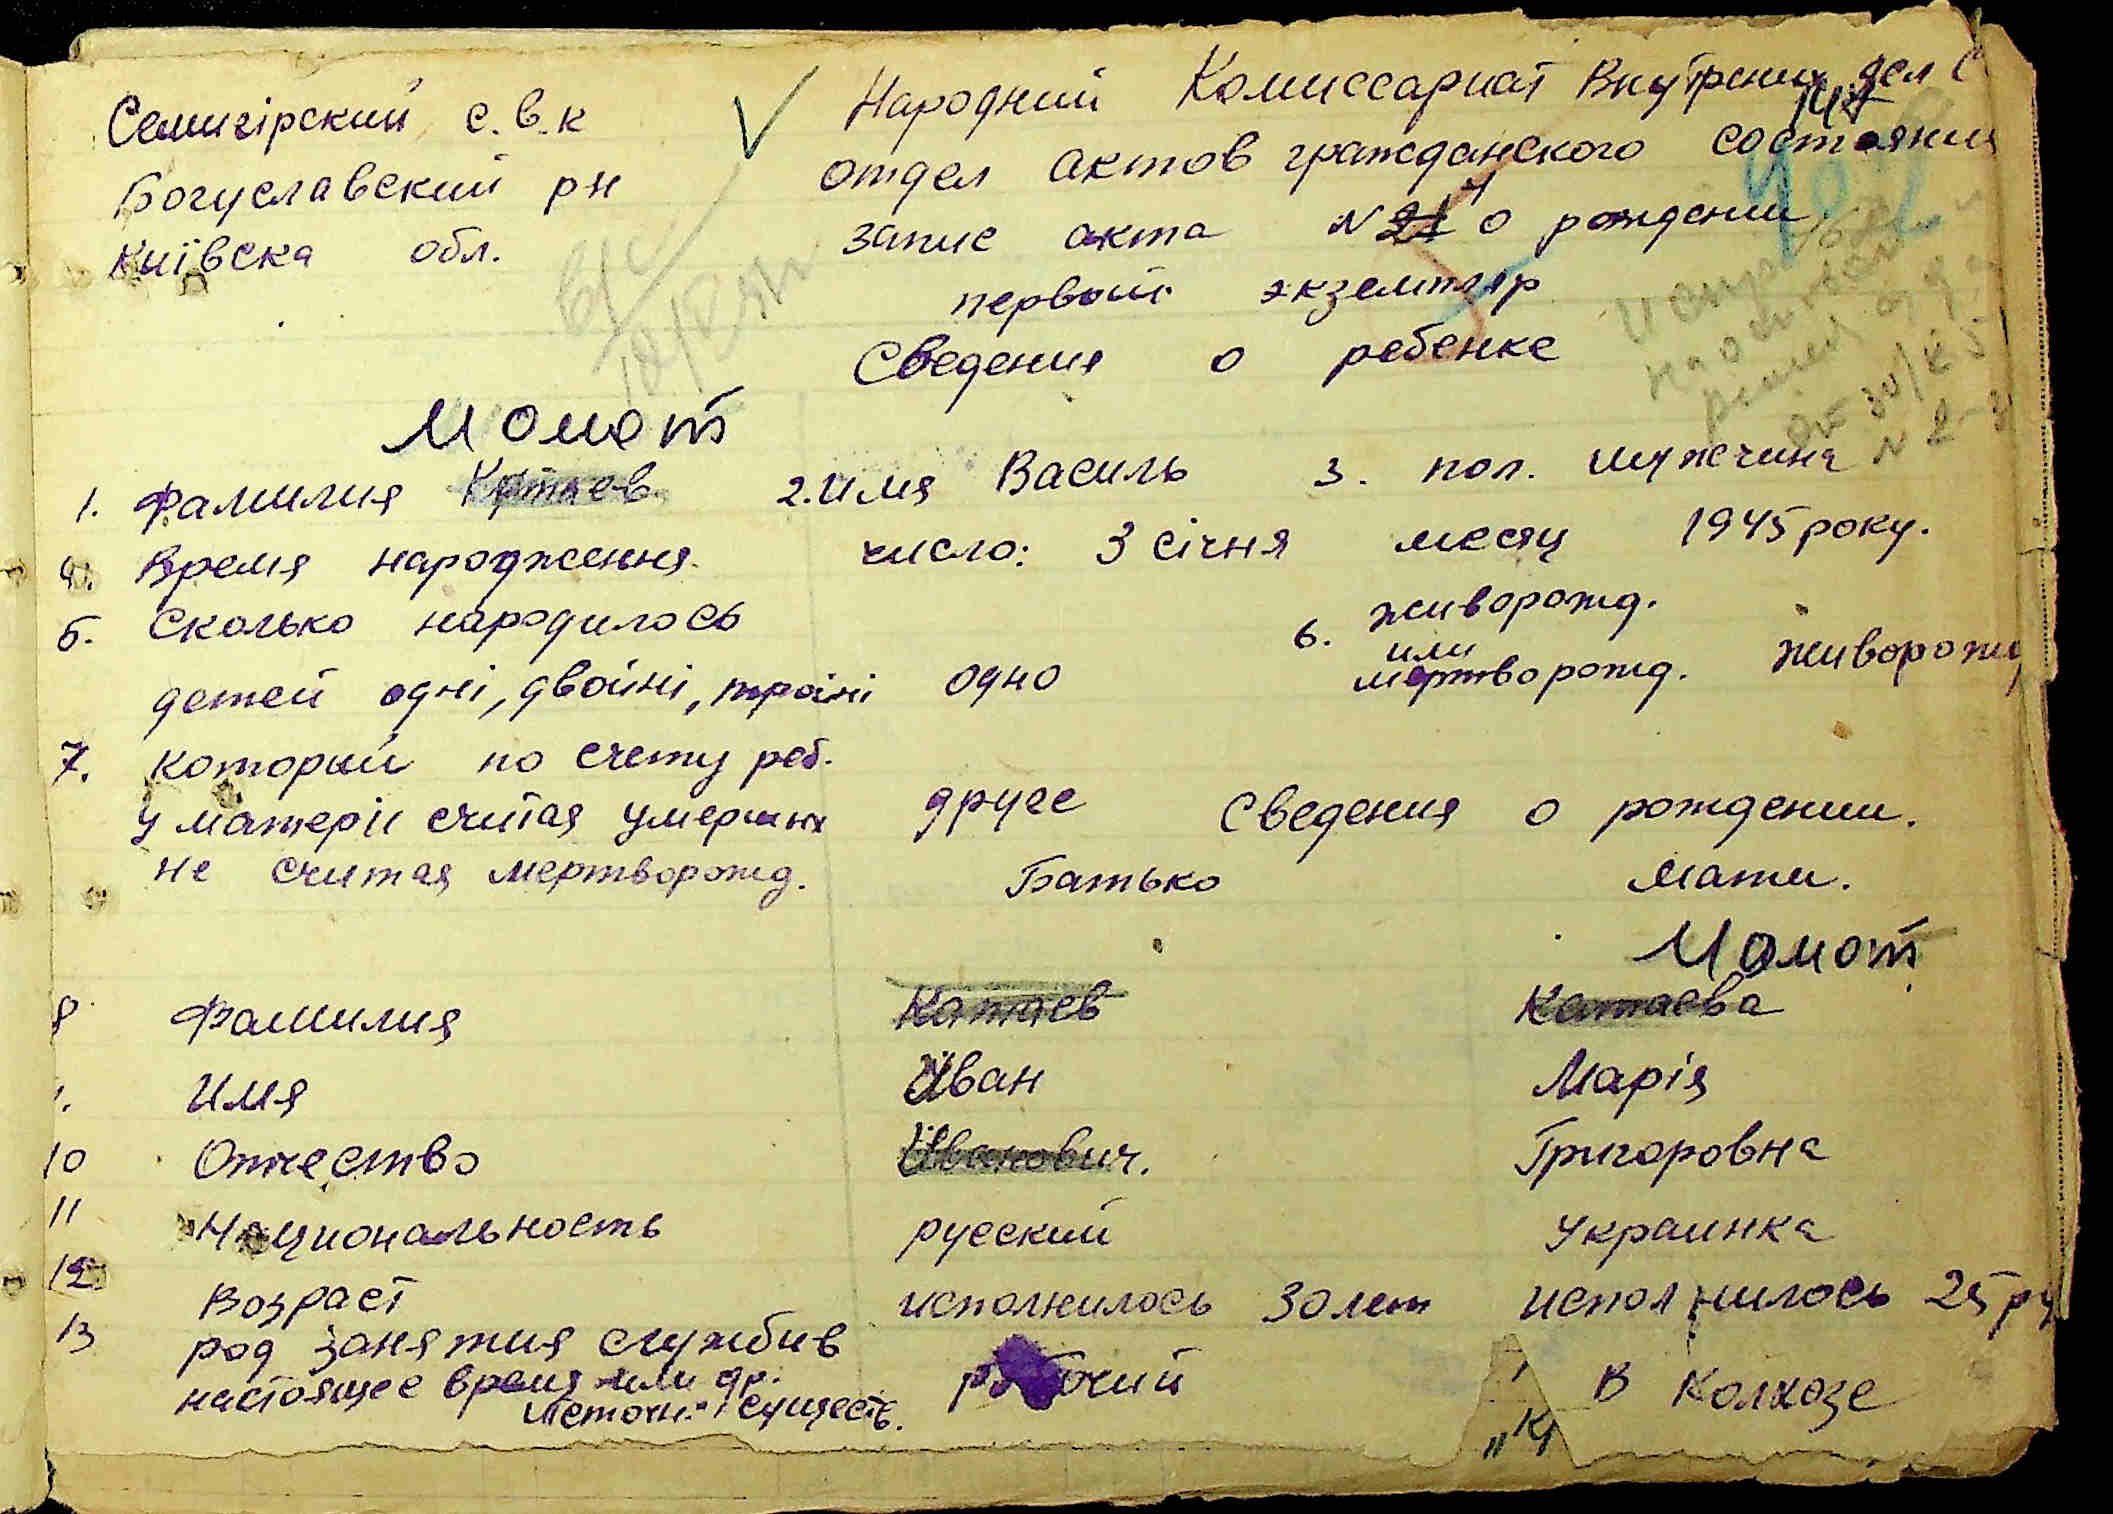 Семигірский с.в.к
Богуславский рн
Київска обл.
Народний Комиссариат Внутрених дел
отдел актов гражданского состояния
запис акта N 21 о рождении
первый экземпляр
Сведения о ребенке
Момот
1. Фамилия Катаев 2. Имя Василь 3. пол. мужчина
4. Время народження. число: 3 січня месяц 1945 року.
5. Сколько народилось
детей одні, двойні, тройні одно
6. живорожд.
или
мертворожд. живорожд
7. который по счету реб.
у матери считая умерших друге
не считая мертворожд.
Сведения о рождении.
Батько Мати.
Момот
8 Фамилия Катаев Катаева
Имя Иван Марія
10 Отчество Иванович. Григоровна
11 Национальность русский Украинка
12 Возраст исполнилось 30 лет исполнилось 25
13 род занятия службы в
настоящее время или др. рабочий В Колхозе
источн. существ.